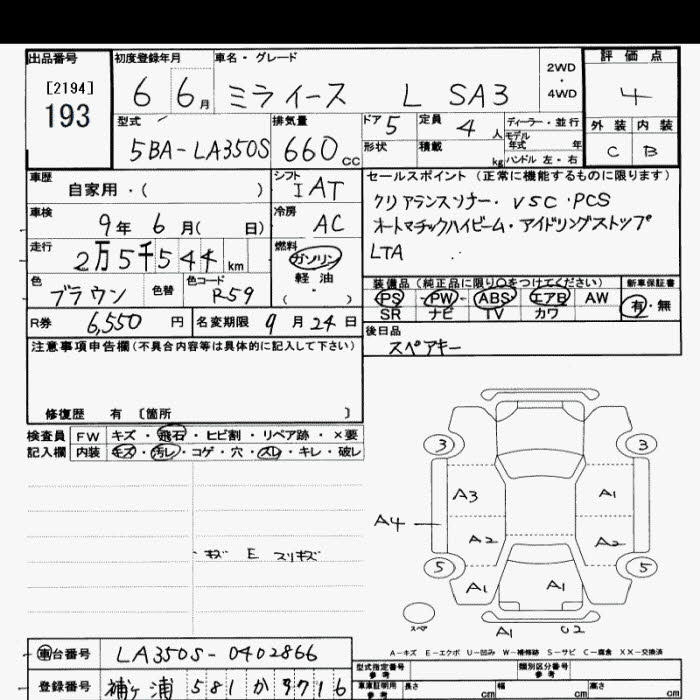 出品番号
[2194]
193
初度登録年月
6 6月
車名・グレード
ミライース L SA3
2WD
・
4WD
評価点
4
外装 内装
C B
型式
5BA-LA350S
排気量
660cc
ドア 5
定員 4人
形状
積載 kg
ディーラー・並行
モデル年式 年
ハンドル 左・右
車歴
自家用・( )
シフト
IAT
車検
9年 6月( 日)
冷房
AC
走行
2万5千544km
燃料
ガソリン
軽油
・
( )
色
ブラウン
色替
色コード
R59
セールスポイント(正常に機能するものに限ります)
クリアランスソナー・VSC・PCS
オートマチックハイビーム・アイドリングストップ
LTA
装備品(純正品に限り○をつけてください)
PS PW ABS エアB AW
SR ナビ TV カワ
新車保証書
有・無
R券 6,550円
名変期限 9月24日
後日品
スペアキー
注意事項申告欄(不具合内容等は具体的に記入して下さい)
修復歴 有 〔箇所 〕
検査員
記入欄
FW キズ・飛石・ヒビ割・リペア跡・×要
内装 キズ・汚レ・コゲ・穴・スレ・キレ・破レ
キズ E スリキズ
3 3
A3 A1
A4
A2 A2
5 5
A1 A1
スペア
A1 U2
A-キズ E-エクボ U-凹み W-補修跡 S-サビ C-腐食 XX-交換済
車台番号
LA350S-0402866
登録番号
袖ヶ浦 581 か 9716
型式指定番号
参考
類別区分番号
参考
車庫証明用
参考
長さ cm
幅 cm
高さ cm